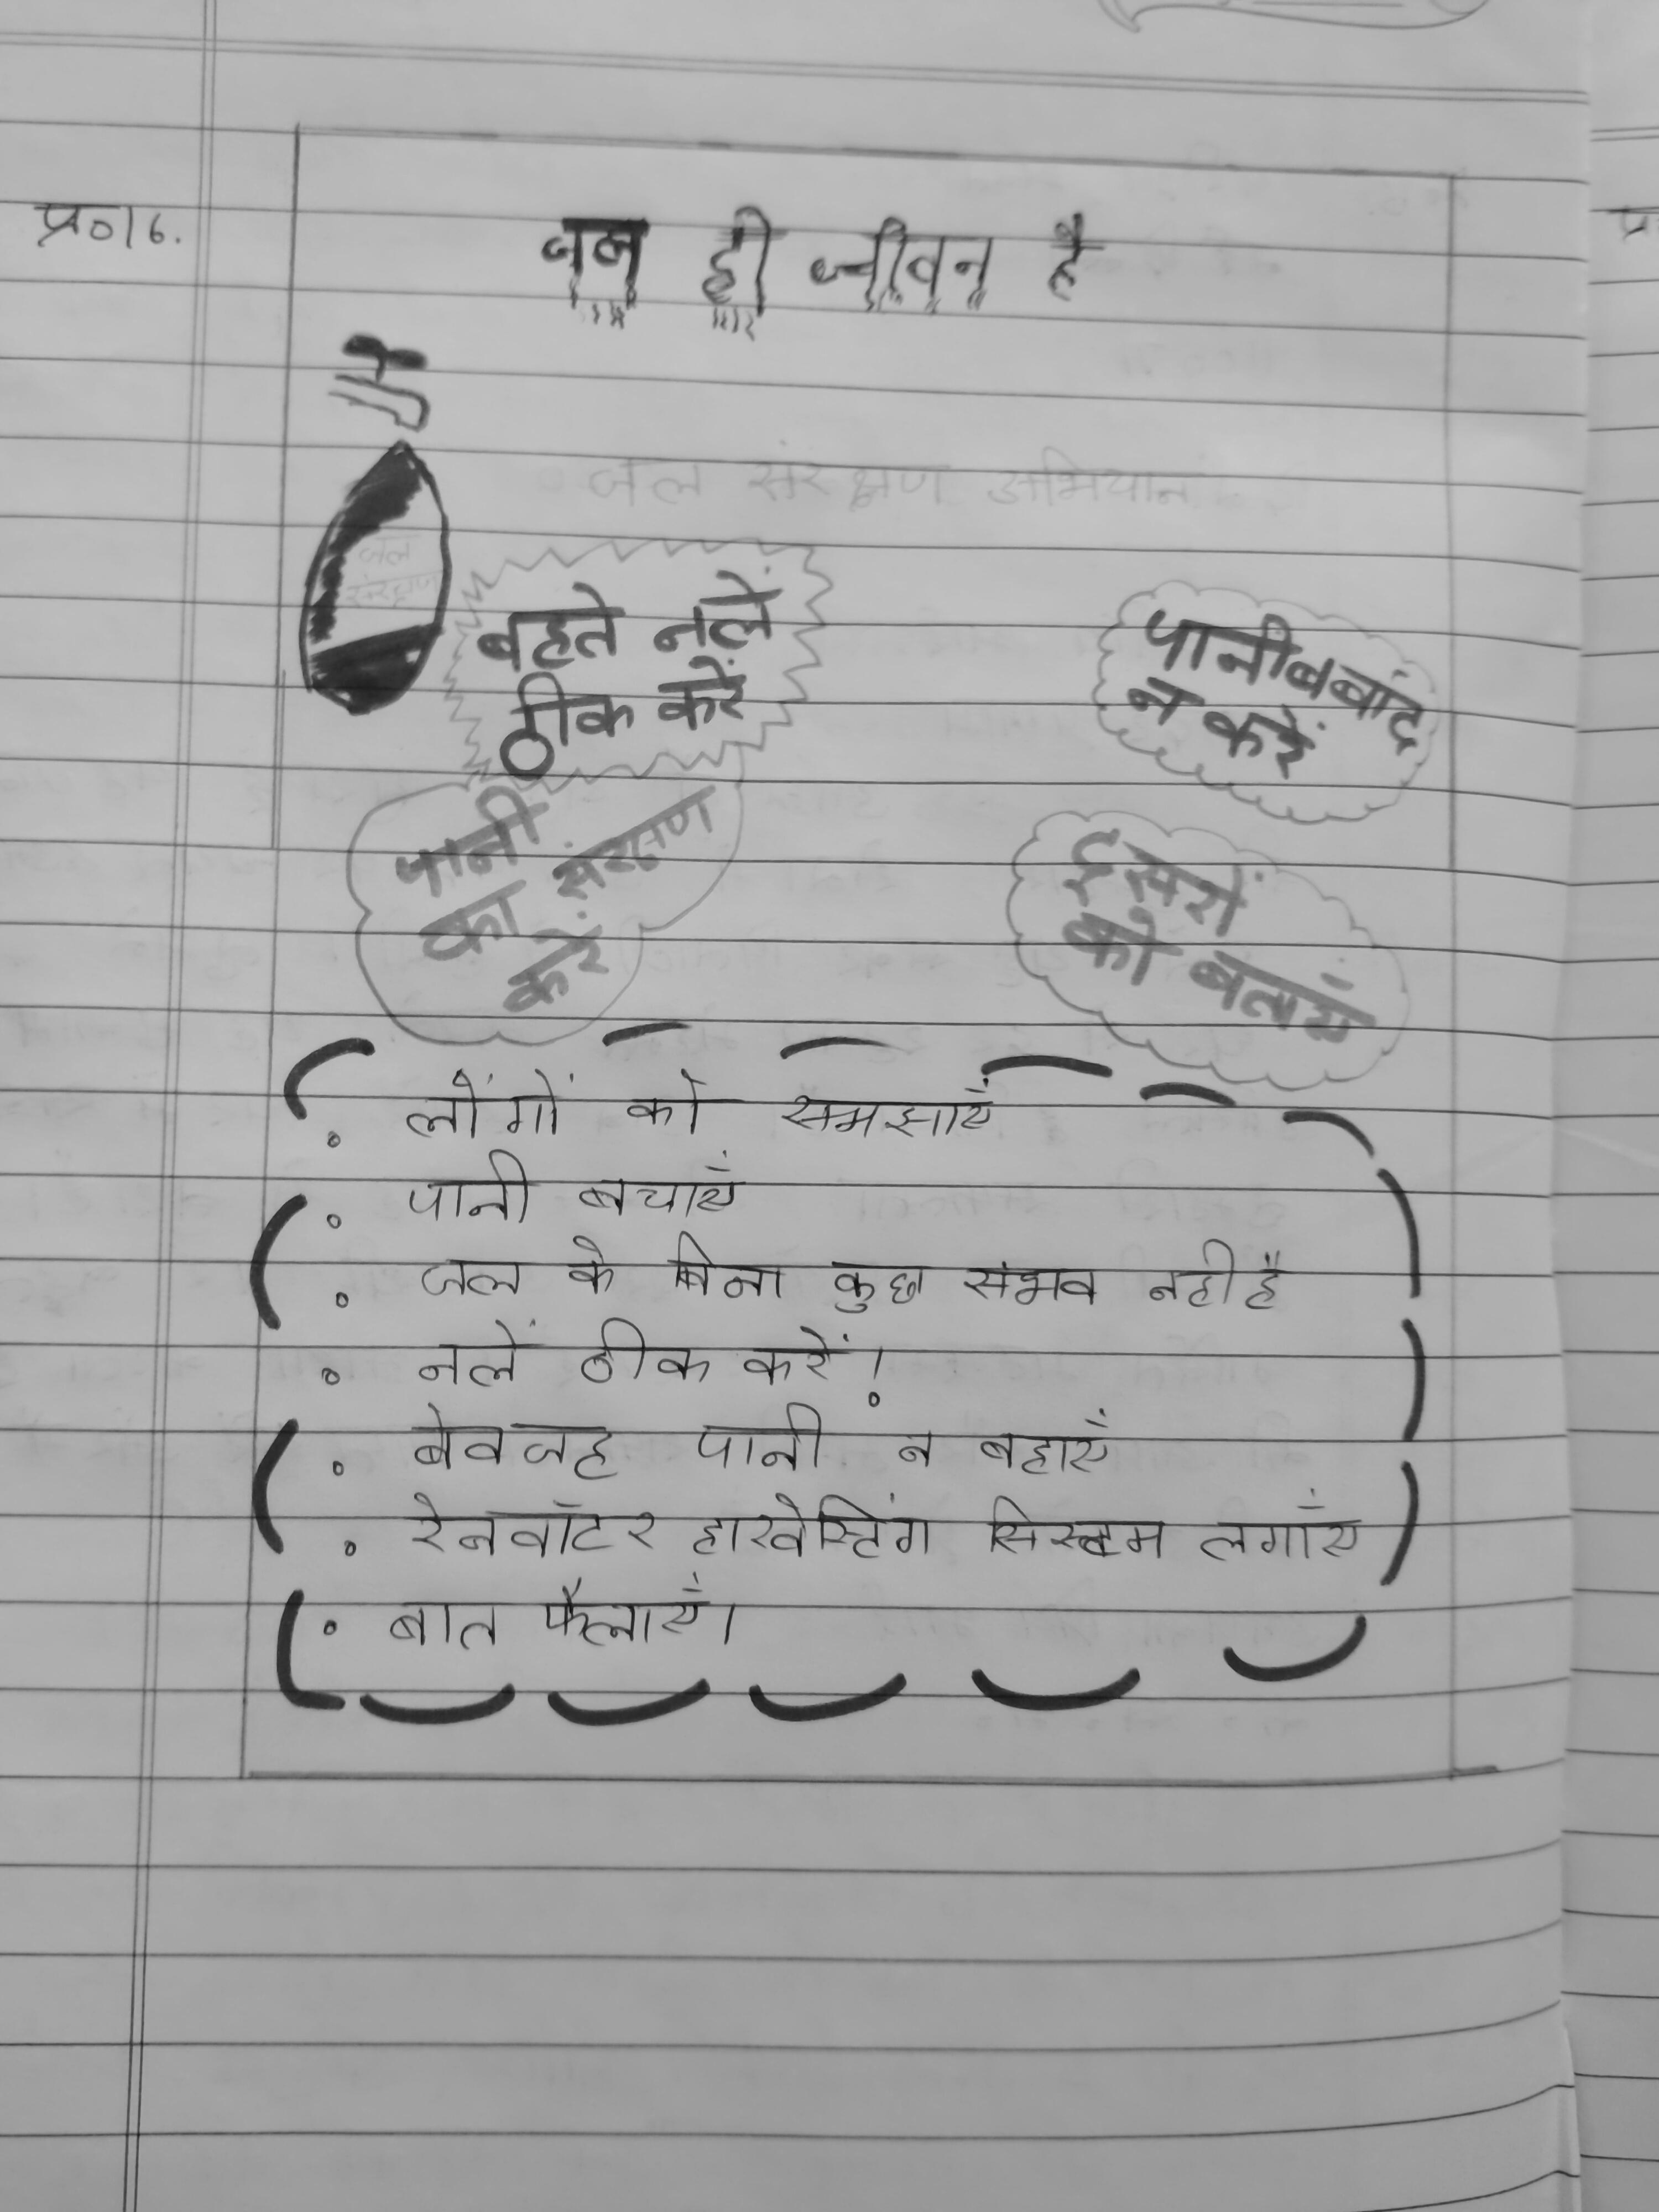 प्र०16.
जल ही जीवन है
जल संरक्षण अभियान
जल
संरक्षण
बहते नलें
ठीक करें
पानी बर्बाद
न करें
पानी
का संरक्षण
करें
दूसरों
को बताएं
लोंगों को समझाएं
पानी बचाएं
जल के बिना कुछ संभव नही है
नलें ठीक करें!
बेवजह पानी न बहाएं
रेनवॉटर हारवेस्टिंग सिस्टम लगाएं
बात फैलाएं।